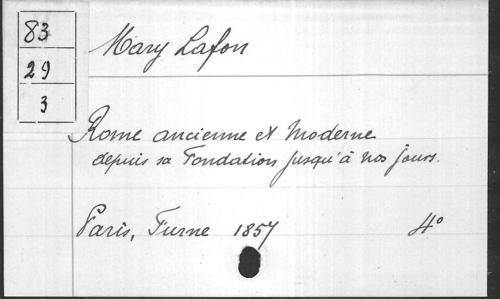 83
29
3
Mary Lafon
Rome ancienne et Moderne
depuis sa Fondation jusqu'à nos jours.
Paris, Furne 1857 4°